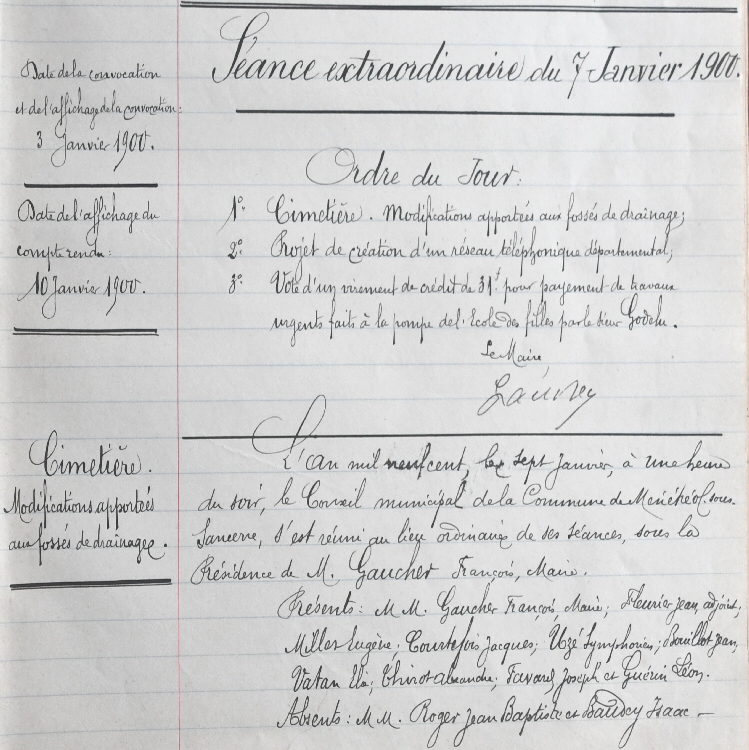 Séance extraordinaire du 7 Janvier 1900.
Date de la convocation
et de l'affichage de la convocation:
3 Janvier 1900.
Date de l'affichage du
compte rendu:
10 Janvier 1900.
Ordre du Jour:
1º. Cimetière. Modifications apportées aux fossés de drainage;
2º. Projet de création d'un réseau téléphonique départemental;
3º. Vote d'un virement de crédit de 31f pour payement de travaux
urgents faits à la pompe de l'Ecole des filles par le sieur
Le Maire,
Cimetière.
Modifications apportées
aux fossés de drainage.
L'an mil neuf cent, le sept Janvier, à une heure
du soir, le Conseil municipal de la Commune de Ménétréol-sous-
Sancerre, s'est réuni au lieu ordinaire de ses séances, sous la
Présidence de M. Gaucher François, Maire.
Présents: M M. Gaucher François, Maire; Fleurier Jean, adjoint;
Millet Eugène; Jacques; Uzé Symphorien; Bouillot Jean;
Vatan Elie; Thirot Alexandre; Joseph et Guérin Léon.
Absents: M M. Roger Jean Baptiste et Isaac —